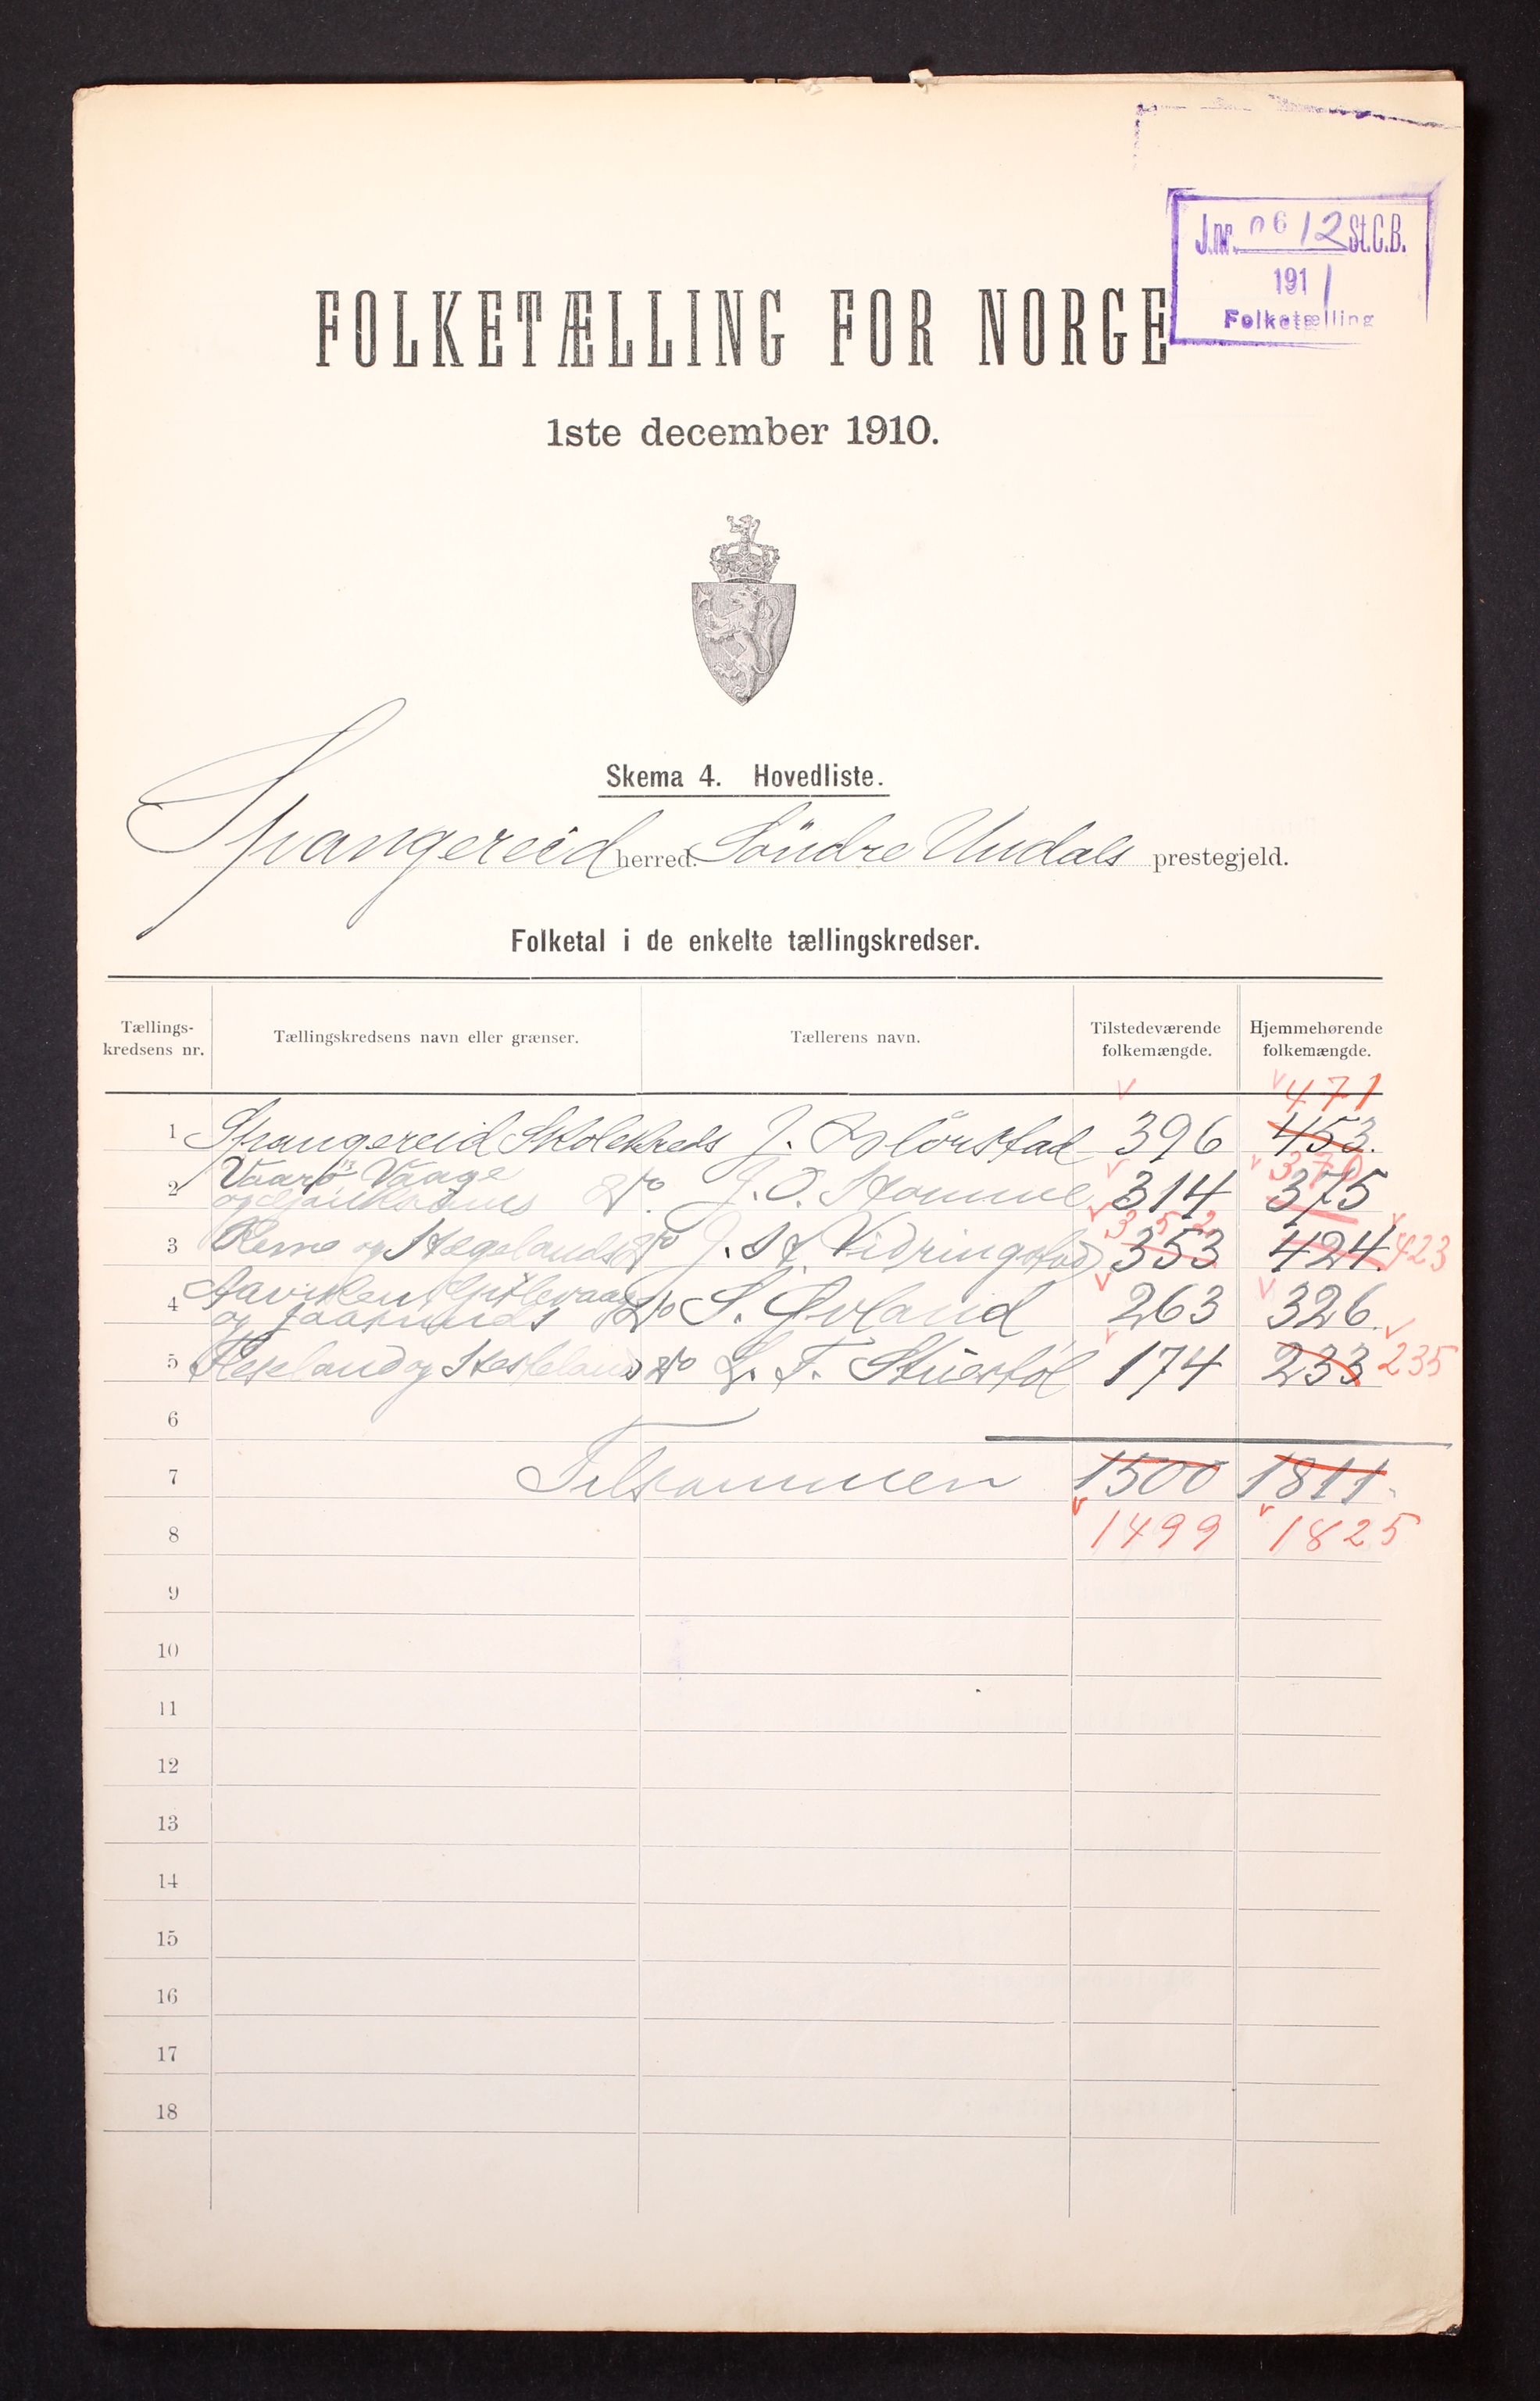 J.nr. 0612 St.C.B.
1911
Folketælling
FOLKETÆLLING FOR NORGE
1ste december 1910.
Skema 4. Hovedliste.
Spangereid herred. Söndre Undals prestegjeld.
Folketal i de enkelte tællingskredser.
Tællings-kredsens nr. Tællingskredsens navn eller grænser. Tællerens navn. Tilstedeværende folkemængde. Hjemmehørende folkemængde.
471
1 Spangereid Skolekreds J. 396 453.
370
2 Vaarø's Vaage og do J. O. Stomme 314 375
352
3 og Hægelands do J. H. Vidringstad 353 424 423
4 og do S. Øvland 263 326.
5 og do L. T. Stuestøl 174 233 235
6
7 Tilsammen 1500 1811.
8 1499 1825
9
10
11
12
13
14
15
16
17
18